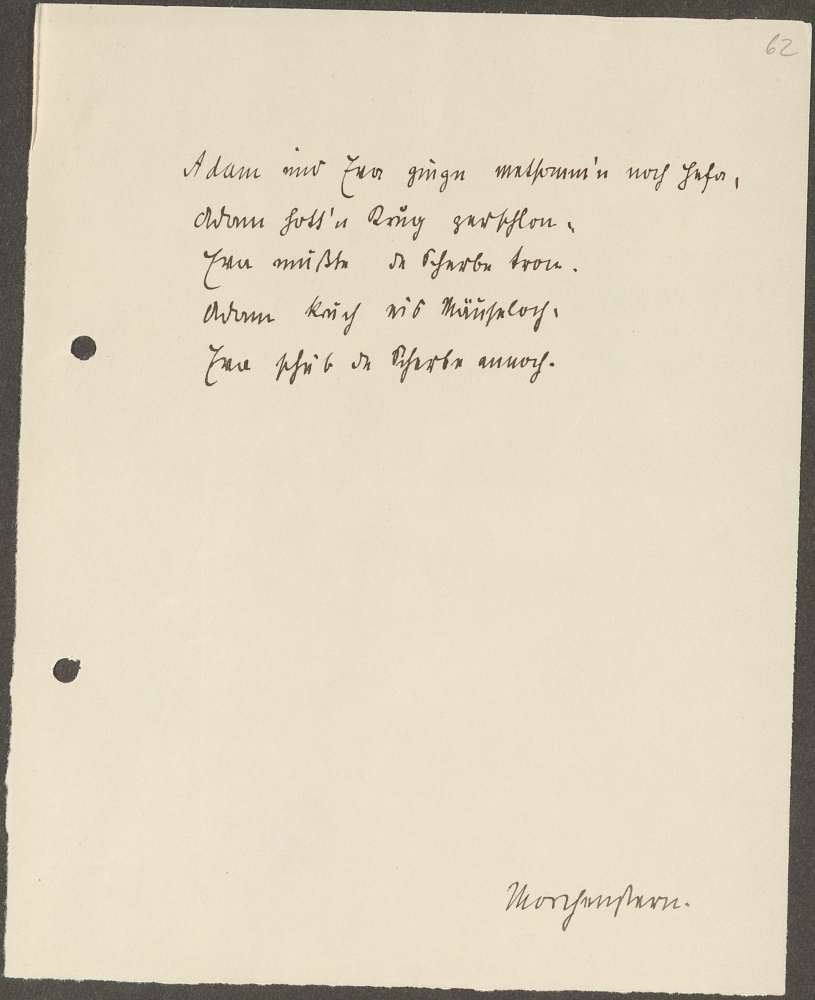 62
Adam und Eva gingn metsomm'n noch Hefa,
Adam hott'n Krug zerschlon,
Eva mußte de Scherbe tron.
Adam kruch eis Mäuseloch,
Eva schub de Scherbe annoch.
Morchenstern.